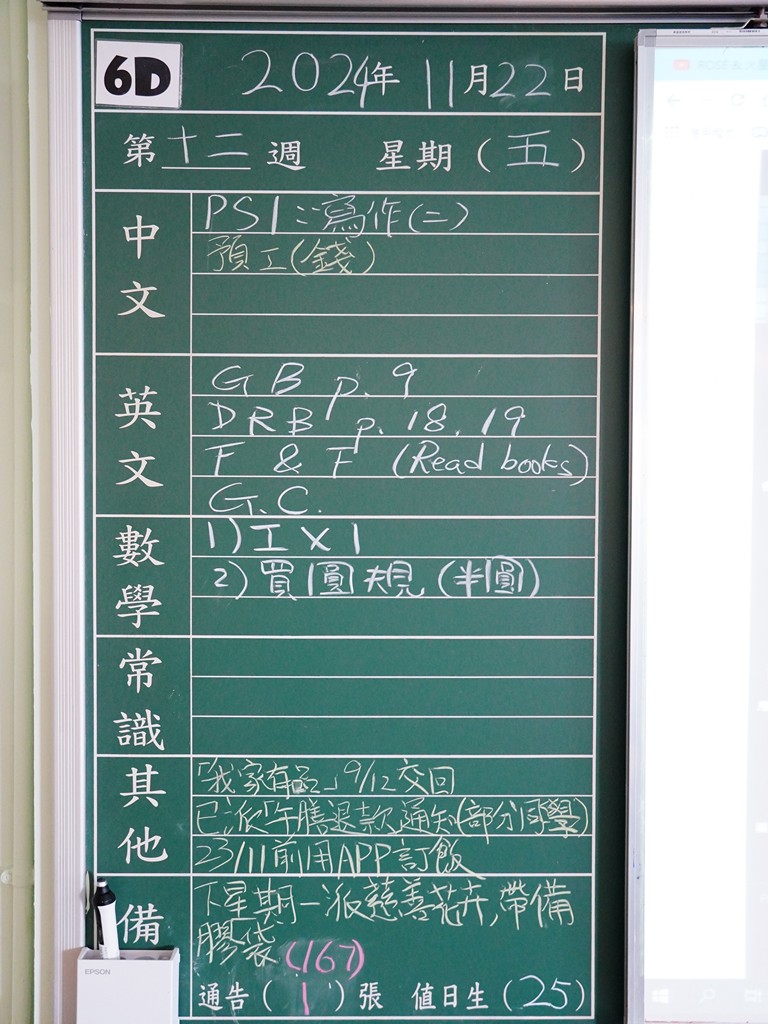 6D 2024年 11月22日
第十二週 星期(五)
中文
PS1:寫作(二)
預工(錢)
英文
GB p. 9
DRB p. 18. 19
F & F (Read books)
G.C.
數學
1) 工 X 1
2) 買圓規(半圓)
常識
其他
「我家有品」9/12交回
已派「午膳退款」通知(部分同學)
23/11前用APP訂飯
備
下星期一派慈善花卉,帶備
膠袋 (167)
通告(1)張 值日生(25)
EPSON